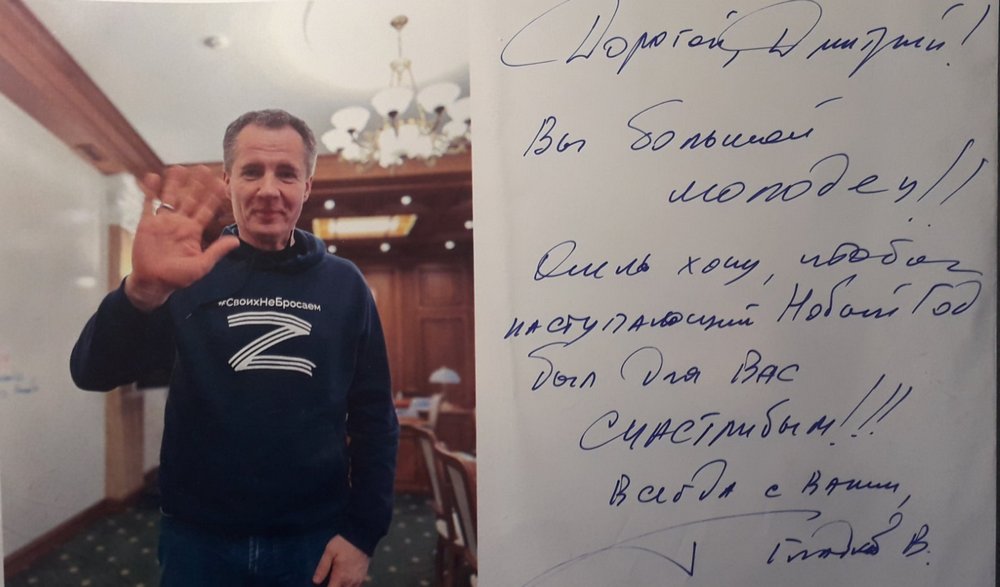 #СвоихНеБросаем
Z
Дорогой, Дмитрий!
Вы большой
молодец!!
Очень хочу, чтобы
наступающий Новый Год
был для Вас
счастливым!!!
Всегда с Вами,
Гладков В.